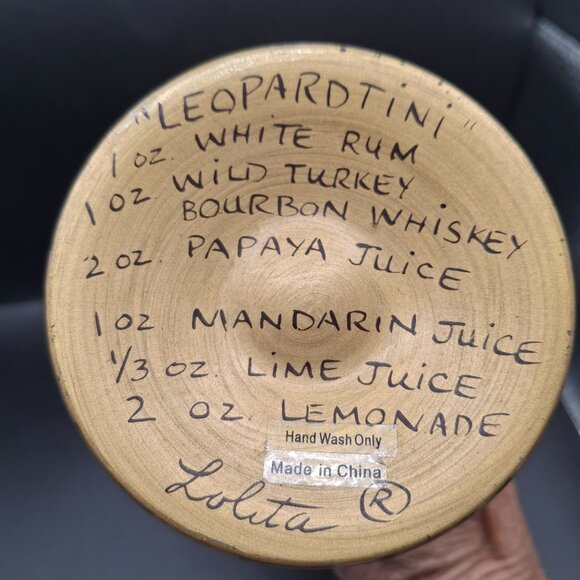 "LEOPARDTiNi"
1 OZ. WHITE RUM
1 OZ WiLD TURKEY
BOURBON WHISKEY
2 OZ. PAPAYA JUiCE
1 OZ MANDARIN JUiCE
1/3 OZ. LIME JUiCE
2 OZ. LEMONADE
Hand Wash Only
Made in China
Lolita ®